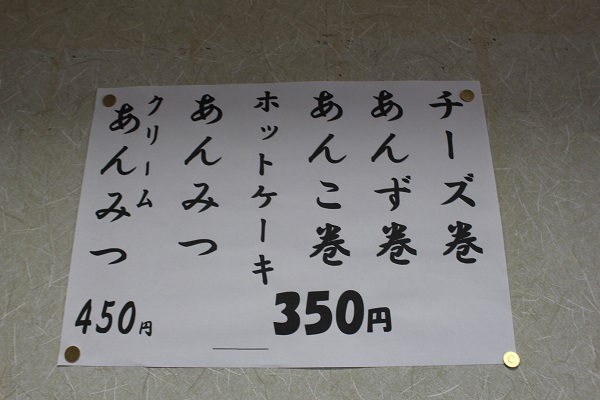 チーズ巻
あんず巻
あんこ巻
ホットケーキ
あんみつ
クリーム
あんみつ
350円
450円